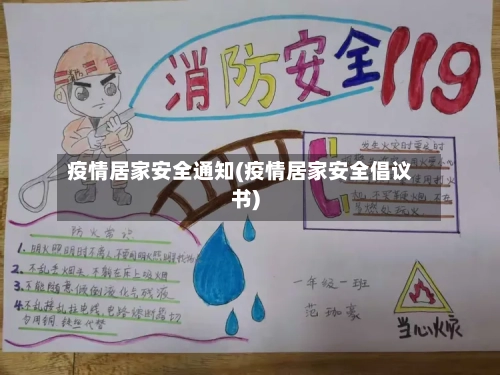 消防安全119
疫情居家安全通知(疫情居家安全倡议
书)
防火常识
1.明火照明时不离人,不使用明火照明
2.不乱丢烟头,不躺在床上吸烟
3.不能随意倾倒液化气残液
4.不乱接乱拉电线,电路熔断器切
勿用铜、铁丝代替
发生火灾时要及时
一年级一班
范珈豪
当心火灾